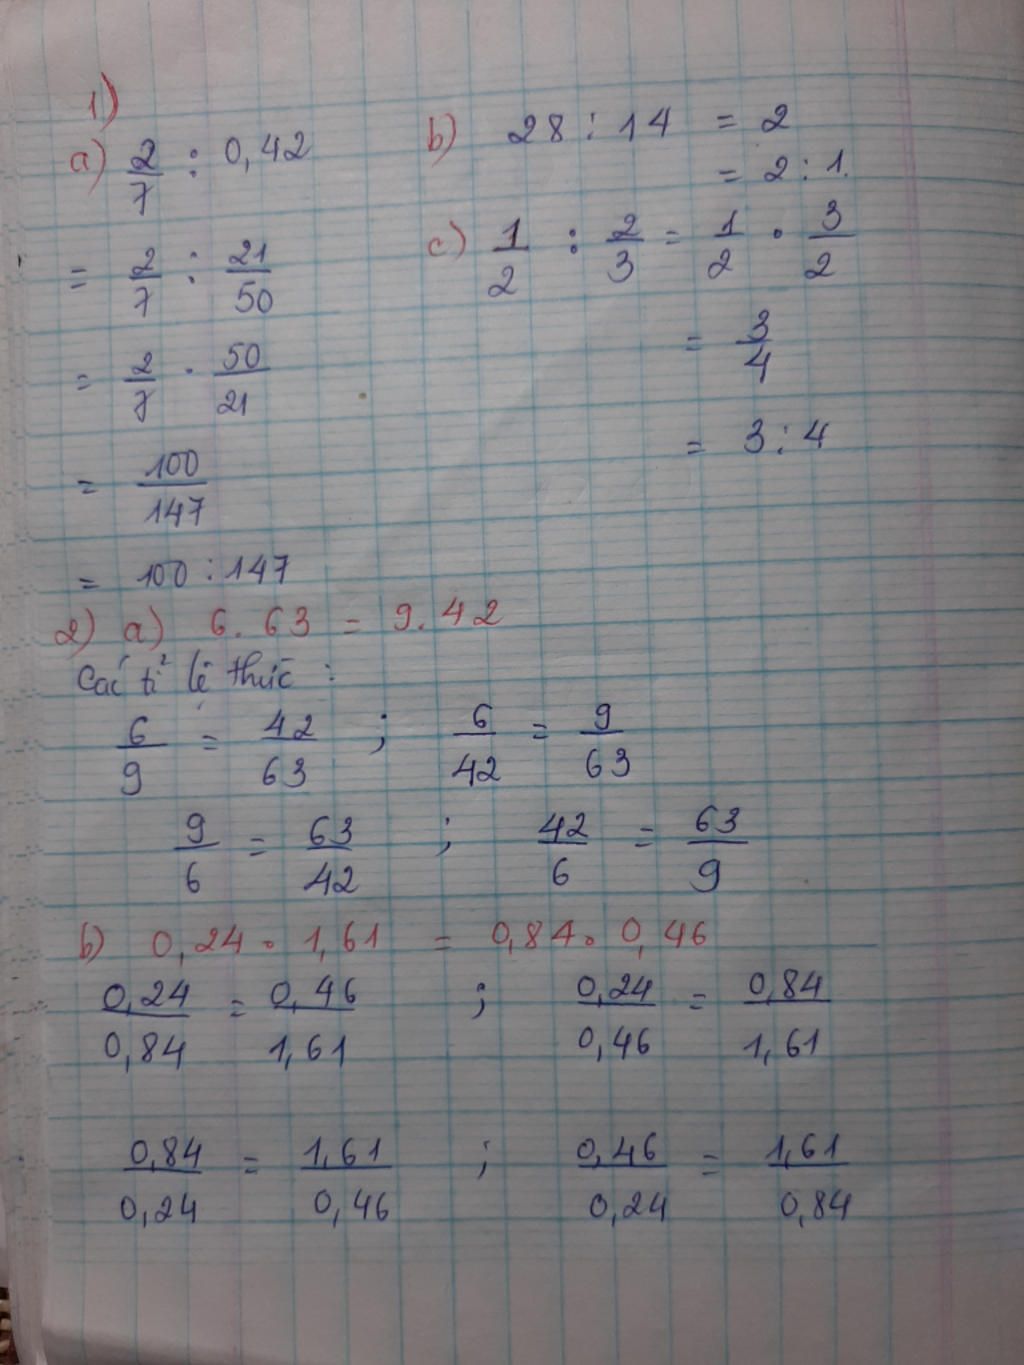 1)
a) 2/7 : 0,42
= 2/7 : 21/50
= 2/7 . 50/21
= 100/147
= 100 : 147
b) 28 : 14 = 2
= 2 : 1.
c) 1/2 : 2/3 = 1/2 . 3/2
= 3/4
= 3 : 4
2) a) 6 . 63 = 9 . 42
Các tỉ lệ thức :
6/9 = 42/63 ; 6/42 = 9/63
9/6 = 63/42 ; 42/6 = 63/9
b) 0,24 . 1,61 = 0,84 . 0,46
0,24/0,84 = 0,46/1,61 ; 0,24/0,46 = 0,84/1,61
0,84/0,24 = 1,61/0,46 ; 0,46/0,24 = 1,61/0,84